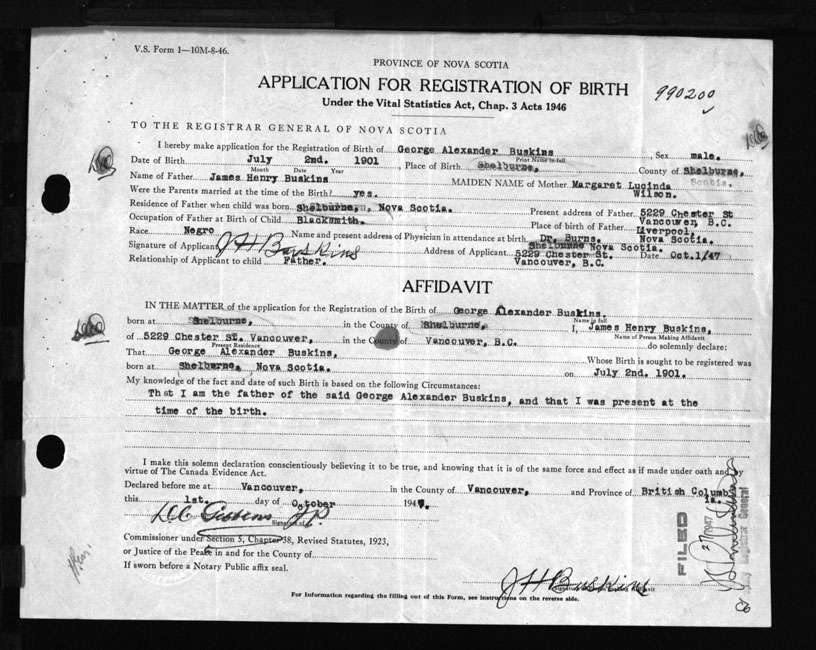 V.S. Form 1—10M-8-46.
PROVINCE OF NOVA SCOTIA
APPLICATION FOR REGISTRATION OF BIRTH
990200
Under the Vital Statistics Act, Chap. 3 Acts 1946
TO THE REGISTRAR GENERAL OF NOVA SCOTIA
I hereby make application for the Registration of Birth of George Alexander Buskins, Sex male.
Print Name in full
Date of Birth July 2nd. 1901, Place of Birth Shelburne, County of Shelburne,
Month Date Year
Scotia.
Name of Father James Henry Buskins MAIDEN NAME of Mother Margaret Lucinda
Wilson.
Were the Parents married at the time of the Birth? yes.
Residence of Father when child was born Shelburne, Nova Scotia. Present address of Father 5229 Chester St
Vancouver, B.C.
Occupation of Father at Birth of Child Blacksmith. Place of birth of Father Liverpool,
Nova Scotia.
Race Negro Name and present address of Physician in attendance at birth Dr. Burns.
Shelburne Nova Scotia.
Signature of Applicant J H Buskins Address of Applicant 5229 Chester St. Date Oct.1/47
Vancouver, B.C.
Relationship of Applicant to child Father.
AFFIDAVIT
IN THE MATTER of the application for the Registration of the Birth of George Alexander Buskins.
Name in full
born at Shelburne, in the County of Shelburne, I, James Henry Buskins,
Name of Person Making Affidavit
of 5229 Chester St. Vancouver, in the County of Vancouver, B.C. do solemnly declare:
Present Residence
That George Alexander Buskins, Whose Birth is sought to be registered was
born at Shelburne, Nova Scotia. on July 2nd. 1901.
My knowledge of the fact and date of such Birth is based on the following Circumstances:
That I am the father of the said George Alexander Buskins, and that I was present at the
time of the birth.
I make this solemn declaration conscientiously believing it to be true, and knowing that it is of the same force and effect as if made under oath and by
virtue of The Canada Evidence Act.
Declared before me at Vancouver, in the County of Vancouver, and Province of British Columbia.
this 1st. day of October 1947.
J.P.
Commissioner under Section 5, Chapter 38, Revised Statutes, 1923,
or Justice of the Peace in and for the County of
If sworn before a Notary Public affix seal.
J H Buskins
For Information regarding the filling out of this Form, see instructions on the reverse side.
FILED
Registrar General